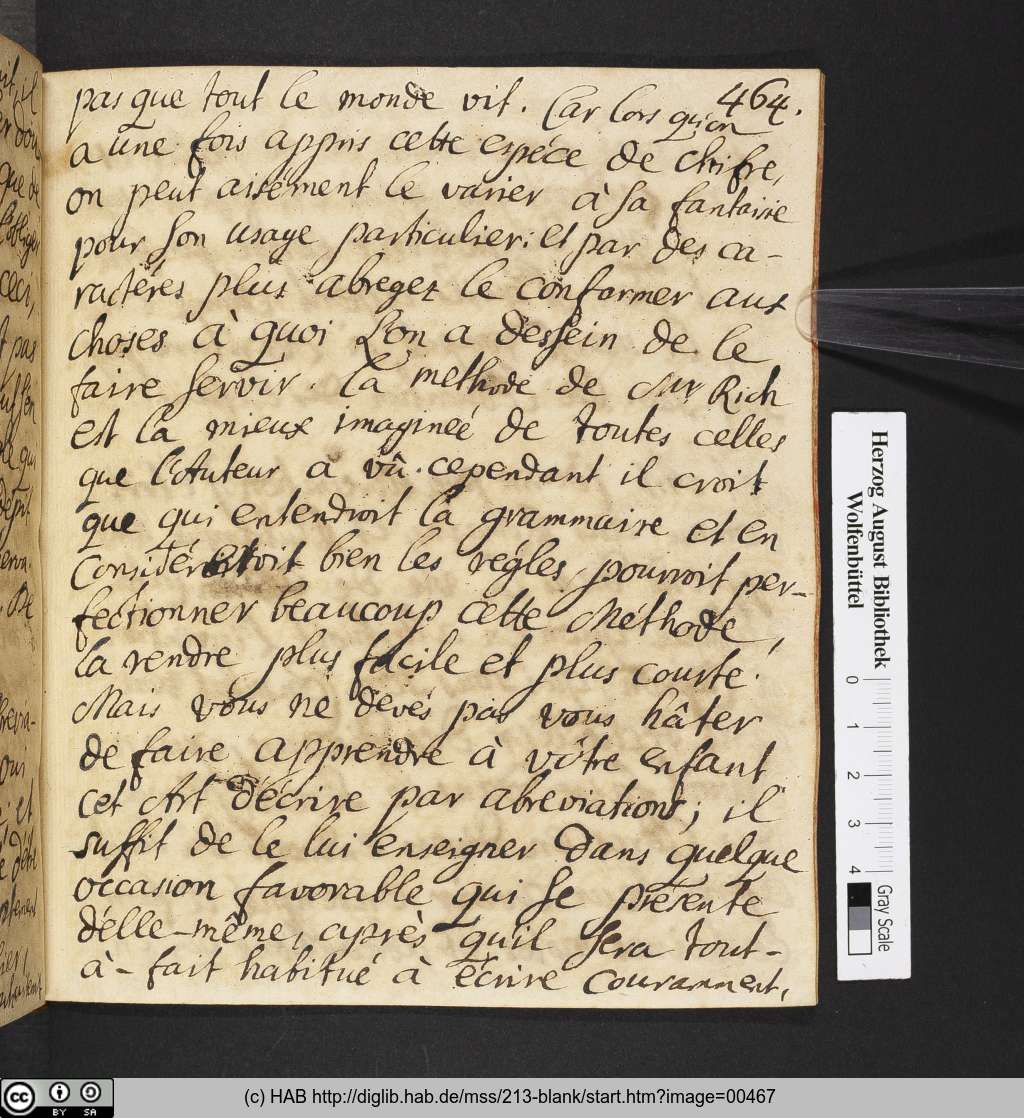 464.
pas que tout le monde vit. Car lors qu'on
a une fois appris cette espéce de chifre,
on peut aisément le varier à sa fantaisie
pour son usage particulier: et par des ca-
ractéres plus abregez le conformer aux
choses à quoi l'on a dessein de le
faire servir. La methode de Mr Rich
est la mieux imagineé de toutes celles
que l'Auteur a vû. cependant il croit
que qui entendroit la grammaire et en
considéreroit bien les régles, pourroit per-
fectionner beaucoup cette Méthode,
la rendre plus facile et plus courte.
Mais vous ne devés pas vous hâter
de faire apprendre à vôtre enfant
cet Art d'écrire par abreviations; il
suffit de le lui enseigner dans quelque
occasion favorable qui se présente
d'elle-même, après qu'il sera tout-
à-fait habitué à écrire couramment,
Herzog August Bibliothek
Wolfenbüttel
0 1 2 3 4
Gray Scale
cc BY SA
(c) HAB http://diglib.hab.de/mss/213-blank/start.htm?image=00467